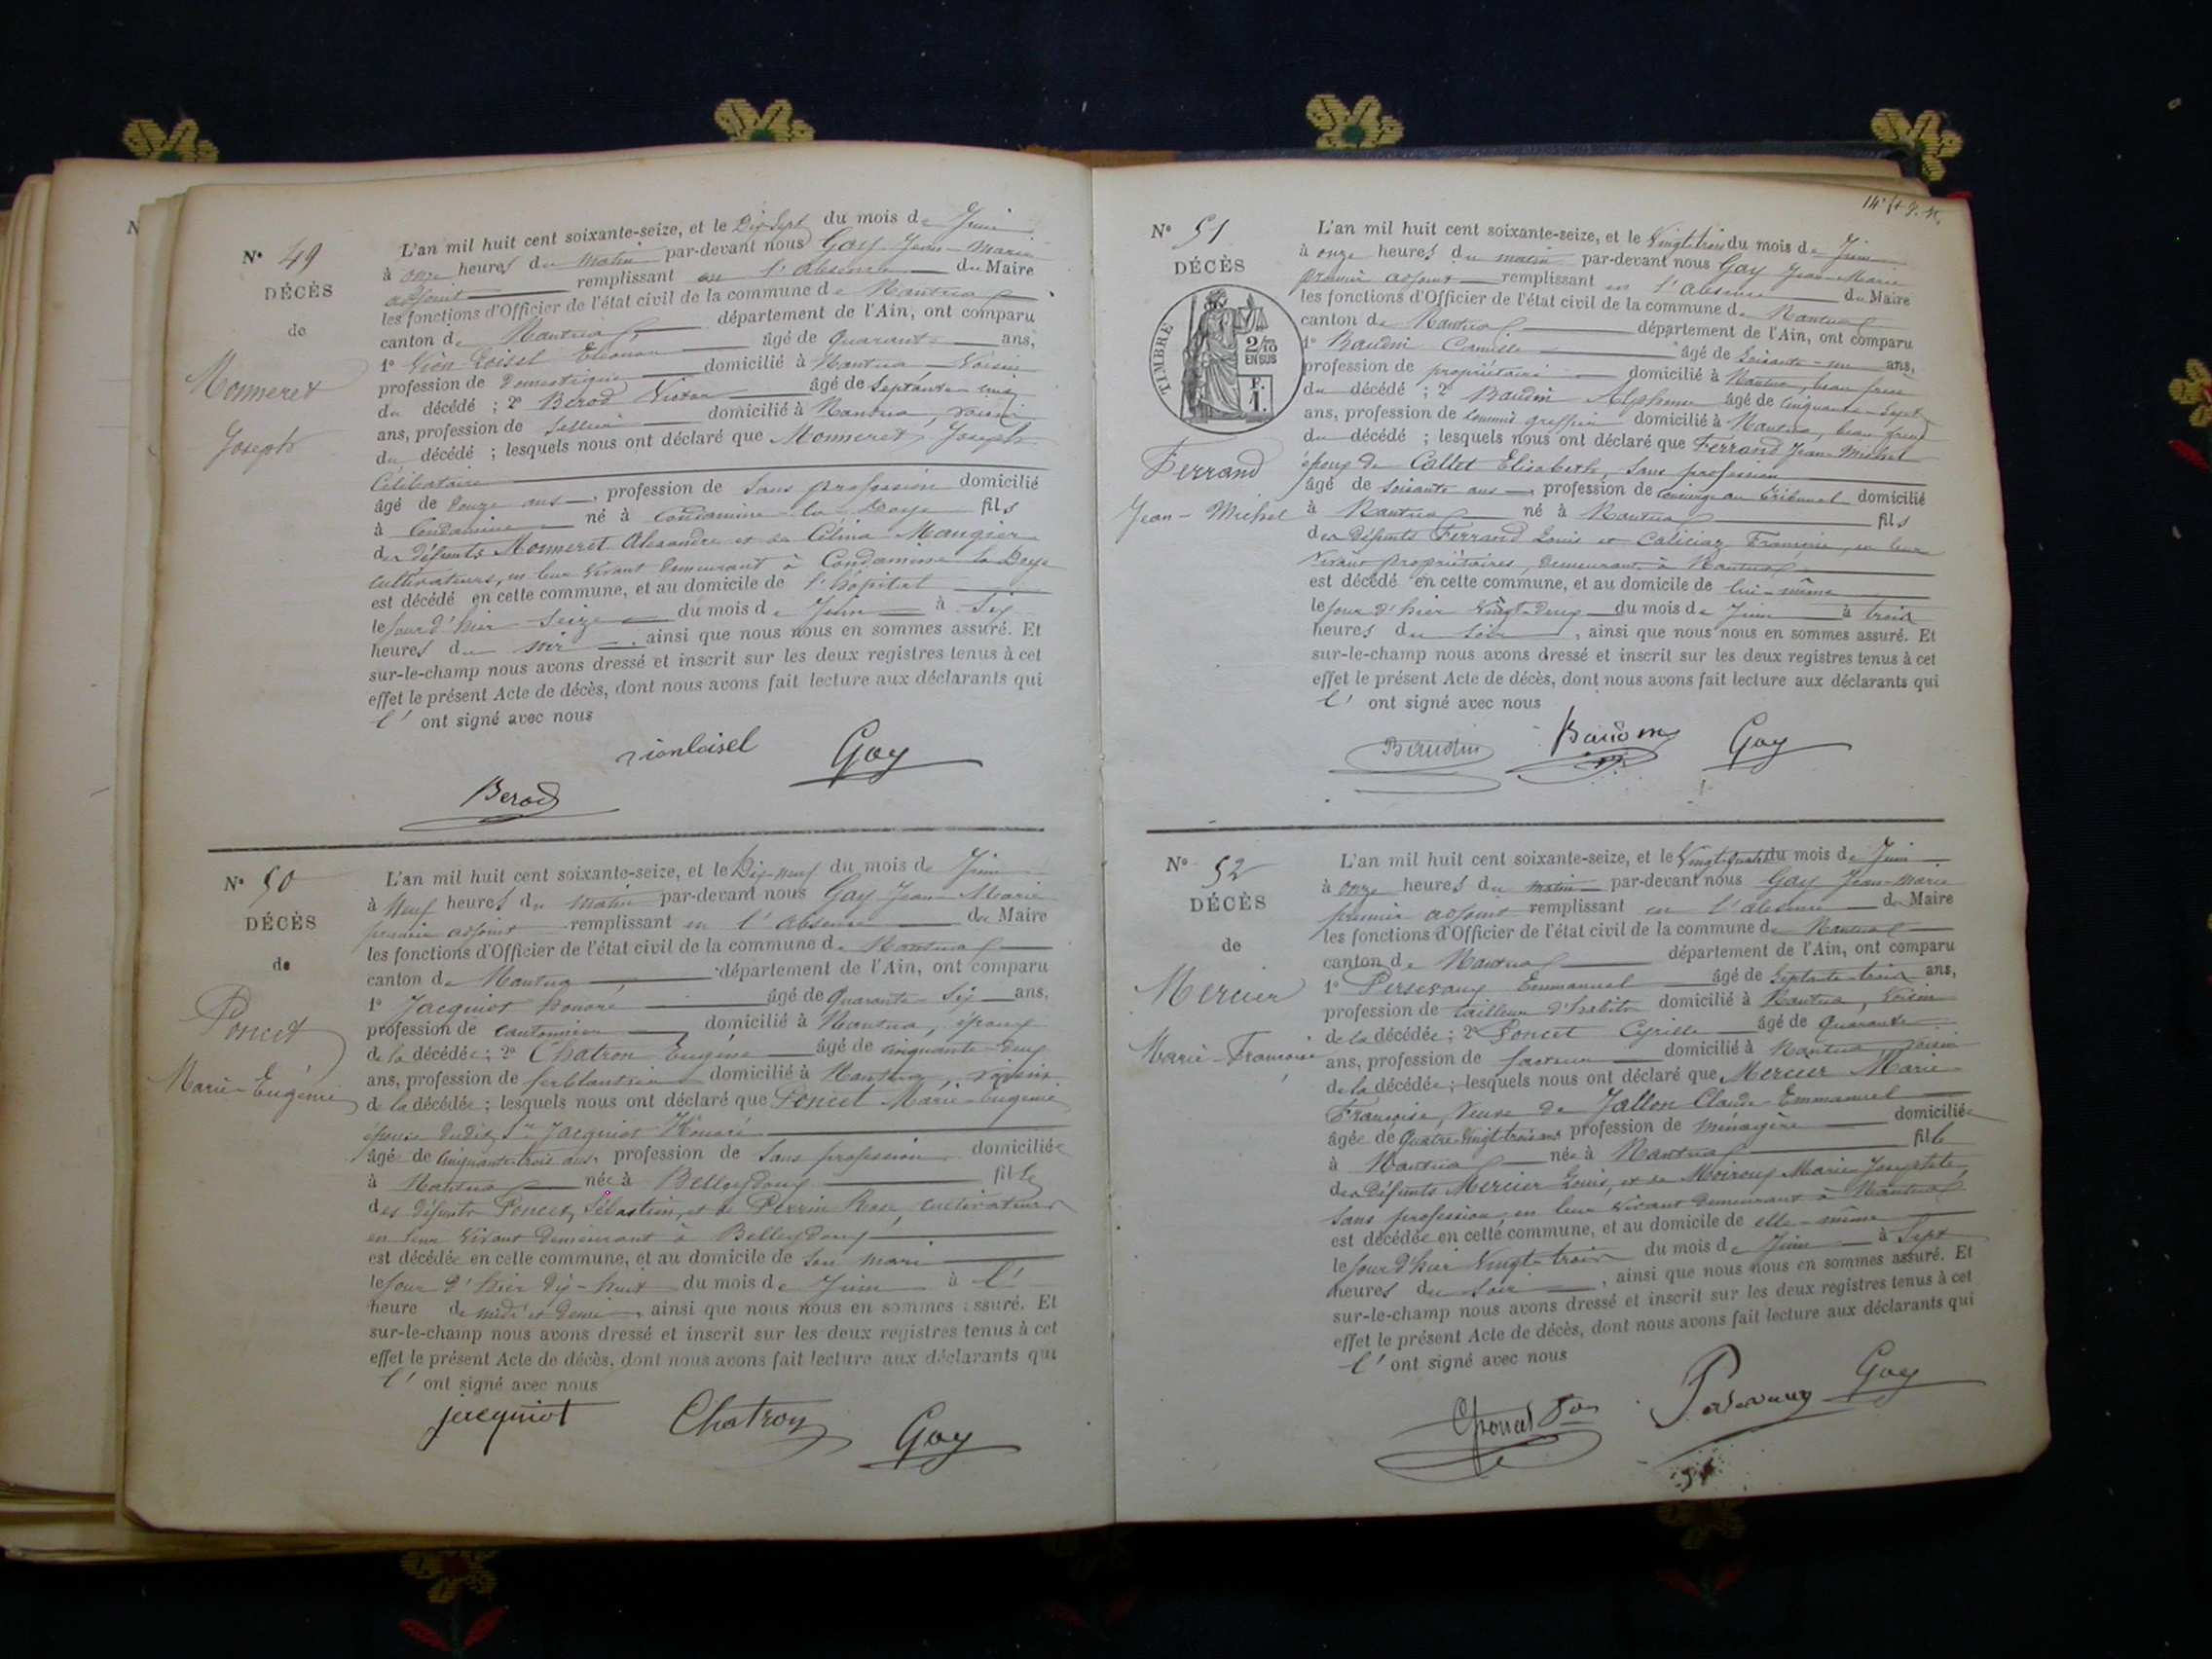 N° 49
DÉCÈS
de
Monneret
Joseph
L'an mil huit cent soixante-seize, et le Dix-Sept du mois de Juin
à onze heures du matin par-devant nous Gay Jean-Marie
adjoint remplissant en l'absence du Maire
les fonctions d'Officier de l'état civil de la commune de Nantua
canton de Nantua département de l'Ain, ont comparu
1° Vion Loisel Eléonor âgé de Quarante ans,
profession de Domestique domicilié à Nantua Voisin
du décédé ; 2° Berod Victor âgé de Septante cinq
ans, profession de Sellier domicilié à Nantua, voisin
du décédé ; lesquels nous ont déclaré que Monneret, Joseph
Célibataire
âgé de Douze ans, profession de Sans profession domicilié
à Condamine né à Condamine la Doye fils
des défunts Monneret Alexandre et de Célina Maugier
cultivateurs, en leur vivant demeurant à Condamine la Doye
est décédé en cette commune, et au domicile de l'hôpital
le jour d'hier Seize du mois de Juin à Six
heures du soir, ainsi que nous nous en sommes assuré. Et
sur-le-champ nous avons dressé et inscrit sur les deux registres tenus à cet
effet le présent Acte de décès, dont nous avons fait lecture aux déclarants qui
l' ont signé avec nous
vionloisel Gay
Berod
N° 50
DÉCÈS
de
Poncet
Marie-Eugénie
L'an mil huit cent soixante-seize, et le Dix-neuf du mois de Juin
à Neuf heures du matin par-devant nous Gay Jean Marie
premier adjoint remplissant en l'absence du Maire
les fonctions d'Officier de l'état civil de la commune de Nantua
canton de Nantua département de l'Ain, ont comparu
1° Jacquiot honoré âgé de Quarante-Six ans,
profession de cantonnier domicilié à Nantua, époux
de la décédée ; 2° Chatron Eugène âgé de cinquante-Deux
ans, profession de ferblantier domicilié à Nantua, voisin
de la décédée ; lesquels nous ont déclaré que Poncet Marie-Eugénie
épouse dudit Sr Jacquiot Honoré
âgée de Cinquante-trois ans, profession de Sans profession domiciliée
à Nantua née à Belleydoux fille
des défunts Poncet, Sébastien, et de Perrin Rose, cultivateurs
en leur vivant demeurant à Belleydoux
est décédée en cette commune, et au domicile de son mari
le jour d'hier dix-huit du mois de Juin à l'
heure de midi et demi, ainsi que nous nous en sommes assuré. Et
sur-le-champ nous avons dressé et inscrit sur les deux registres tenus à cet
effet le présent Acte de décès, dont nous avons fait lecture aux déclarants qui
l' ont signé avec nous
jacquiot Chatron Gay
N° 51
DÉCÈS
TIMBRE
2/10
EN SUS
F.
1.
Ferrand
Jean-Michel
L'an mil huit cent soixante-seize, et le Vingt trois du mois de Juin
à onze heures du matin par-devant nous Gay Jean-Marie
premier adjoint remplissant en l'absence du Maire
les fonctions d'Officier de l'état civil de la commune de Nantua
canton de Nantua département de l'Ain, ont comparu
1° Baudin Camille âgé de Soixante-un ans,
profession de propriétaire domicilié à Nantua, beau frère
du décédé ; 2° Baudin Alphonse âgé de Cinquante-Sept
ans, profession de Commis greffier domicilié à Nantua, beau frère
du décédé ; lesquels nous ont déclaré que Ferrand Jean Michel
époux de Collet Elisabeth, Sans profession
âgé de Soixante ans, profession de Concierge au Tribunal domicilié
à Nantua né à Nantua fils
des Défunts Ferrand Louis et Françoise, en leur
vivant propriétaires, demeurant à Nantua
est décédé en cette commune, et au domicile de lui-même
le jour d'hier Vingt-Deux du mois de Juin à trois
heures du Soir, ainsi que nous nous en sommes assuré. Et
sur-le-champ nous avons dressé et inscrit sur les deux registres tenus à cet
effet le présent Acte de décès, dont nous avons fait lecture aux déclarants qui
l' ont signé avec nous
Baudin Baudin Gay
N° 52
DÉCÈS
de
Mercier
Marie-Françoise
L'an mil huit cent soixante-seize, et le Vingt-Quatre du mois de Juin
à onze heures du matin par-devant nous Gay Jean-Marie
premier adjoint remplissant en l'absence du Maire
les fonctions d'Officier de l'état civil de la commune de Nantua
canton de Nantua département de l'Ain, ont comparu
1° Persevaux Emmanuel âgé de Septante-trois ans,
profession de tailleur d'habits domicilié à Nantua, Voisin
de la décédée ; 2° Poncet Cyrille âgé de Quarante
ans, profession de facteur domicilié à Nantua voisin
de la décédée ; lesquels nous ont déclaré que Mercier Marie
Françoise, Veuve de Jallon Claude-Emmanuel
âgée de Quatre-Vingt trois ans profession de Ménagère domiciliée
à Nantua née à Nantua fille
des Défunts Mercier Louis, et de Moiroux Marie Josephte,
Sans profession en leur vivant demeurant à Nantua
est décédée en cette commune, et au domicile de elle-même
le jour d'hier Vingt-trois du mois de Juin à Sept
heures du Soir, ainsi que nous nous en sommes assuré. Et
sur-le-champ nous avons dressé et inscrit sur les deux registres tenus à cet
effet le présent Acte de décès, dont nous avons fait lecture aux déclarants qui
l' ont signé avec nous
Persevaux Gay